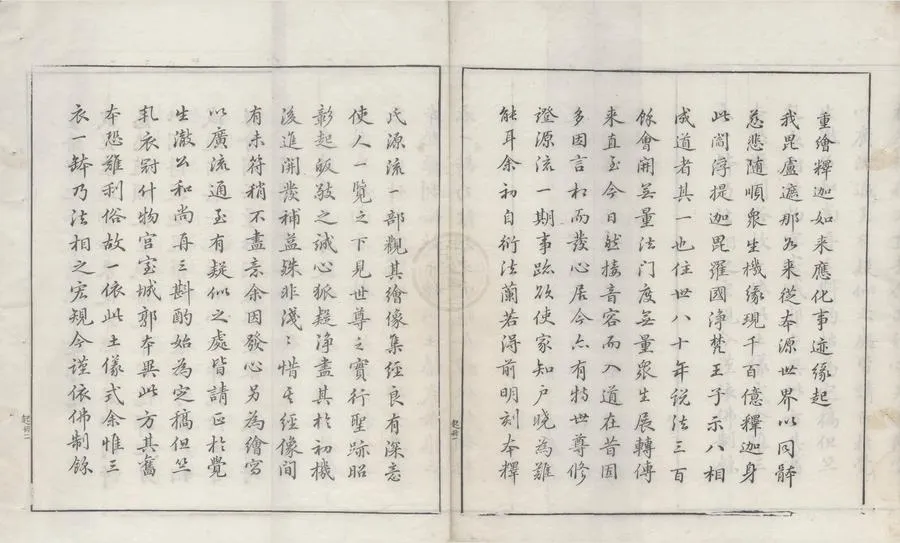 重繪釋迦如來應化事迹緣起
我毘盧遮那如來從本源世界以同體
慈悲隨順衆生機緣現千百億釋迦身
此閻浮提迦毘羅國淨梵王子示八相
成道者其一也住世八十年說法三百
餘會開無量法門度無量衆生展轉傳
來直至今日然接音容而入道在昔固
多因言相而發心居今亦有特世尊修
證源流一期事跡欲使家知戶曉為難
能耳余初自衍法蘭若得前明刻本釋
氏源流一部觀其繪像集經良有深意
使人一覽之下見世尊之實行聖跡昭
彰起皈敬之誠心狐疑淨盡其於初機
後進開發補益殊非淺〻惜其經像間
有未符稍不盡意余因發心另為繪寫
以廣流通至有疑似之處皆請正於覺
生澈公和尚再三斟酌始為定稿但竺
乹衣冠什物宮室城郭本異此方其舊
本恐難利俗故一依此土儀式余惟三
衣一鉢乃法相之宏規今謹依佛制餘